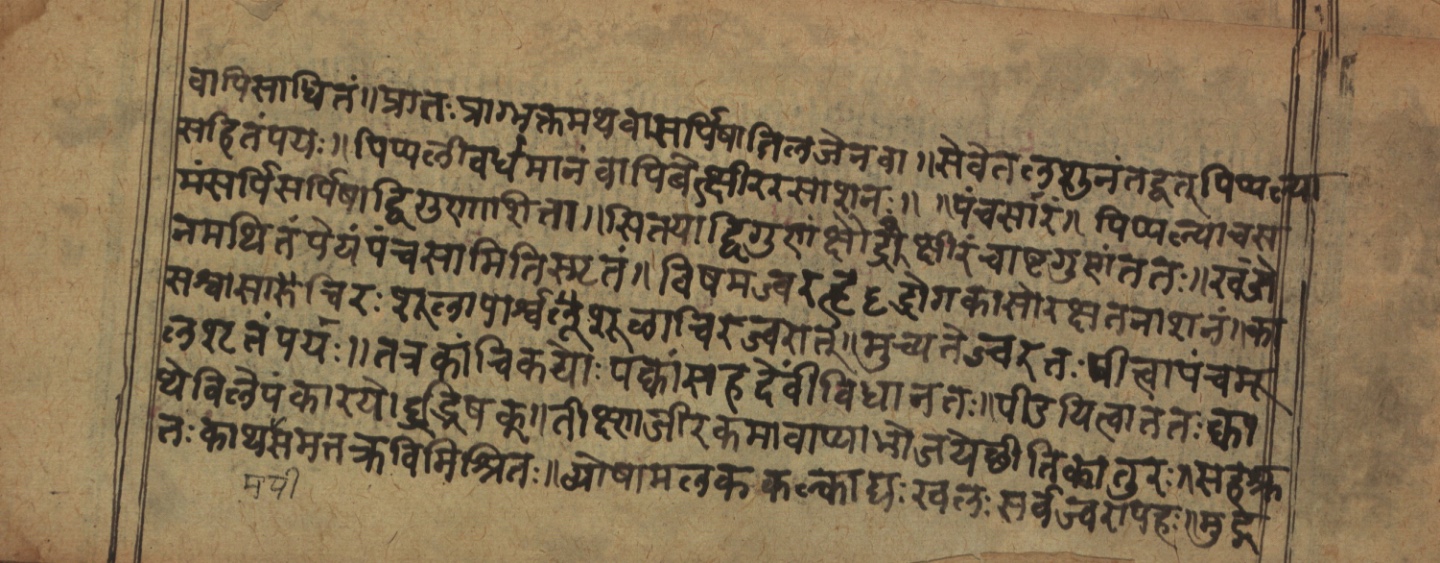 वापिसाधितं॥प्रगतः प्राग्भुक्तमथवासर्पिषातिलजेनवा॥सेवेतलशुनंतद्वत्पिप्पल्या
सहितंपयः॥पिप्पलीवर्धमानंवापिबेत्क्षीररसाशनः॥॥पंचसारं॥पिप्पल्याचस
मंसर्पिसर्पिषाद्विगुणाशिता॥सितयाद्विगुणंक्षौद्रंक्षीरंचाष्टगुणंततः॥खजे
नमथितंपेयंपंचसामितिस्मृतं॥विषमज्वरहृद्रोगकासोरक्षतनाशनं॥का
सश्वासाचिरः शूलापार्श्वशूलाचिरज्वरात्॥मुच्यतेज्वरतः पीत्वापंचमू
लशृतंपयः॥तत्रकांचिकयोः पक्कांसहदेवींविधानतः॥पीडयित्वाततः क्वा
थेविलेपंकारयेद्भिषक्॥तीक्ष्णजीरकमावाप्याभोजयेछीतिकातुरः॥सहस्त्र
तः काथसमतक्रविमिश्रितः॥व्योषामलककल्काद्यः खलः सर्वज्वरापहः॥मुद्ग